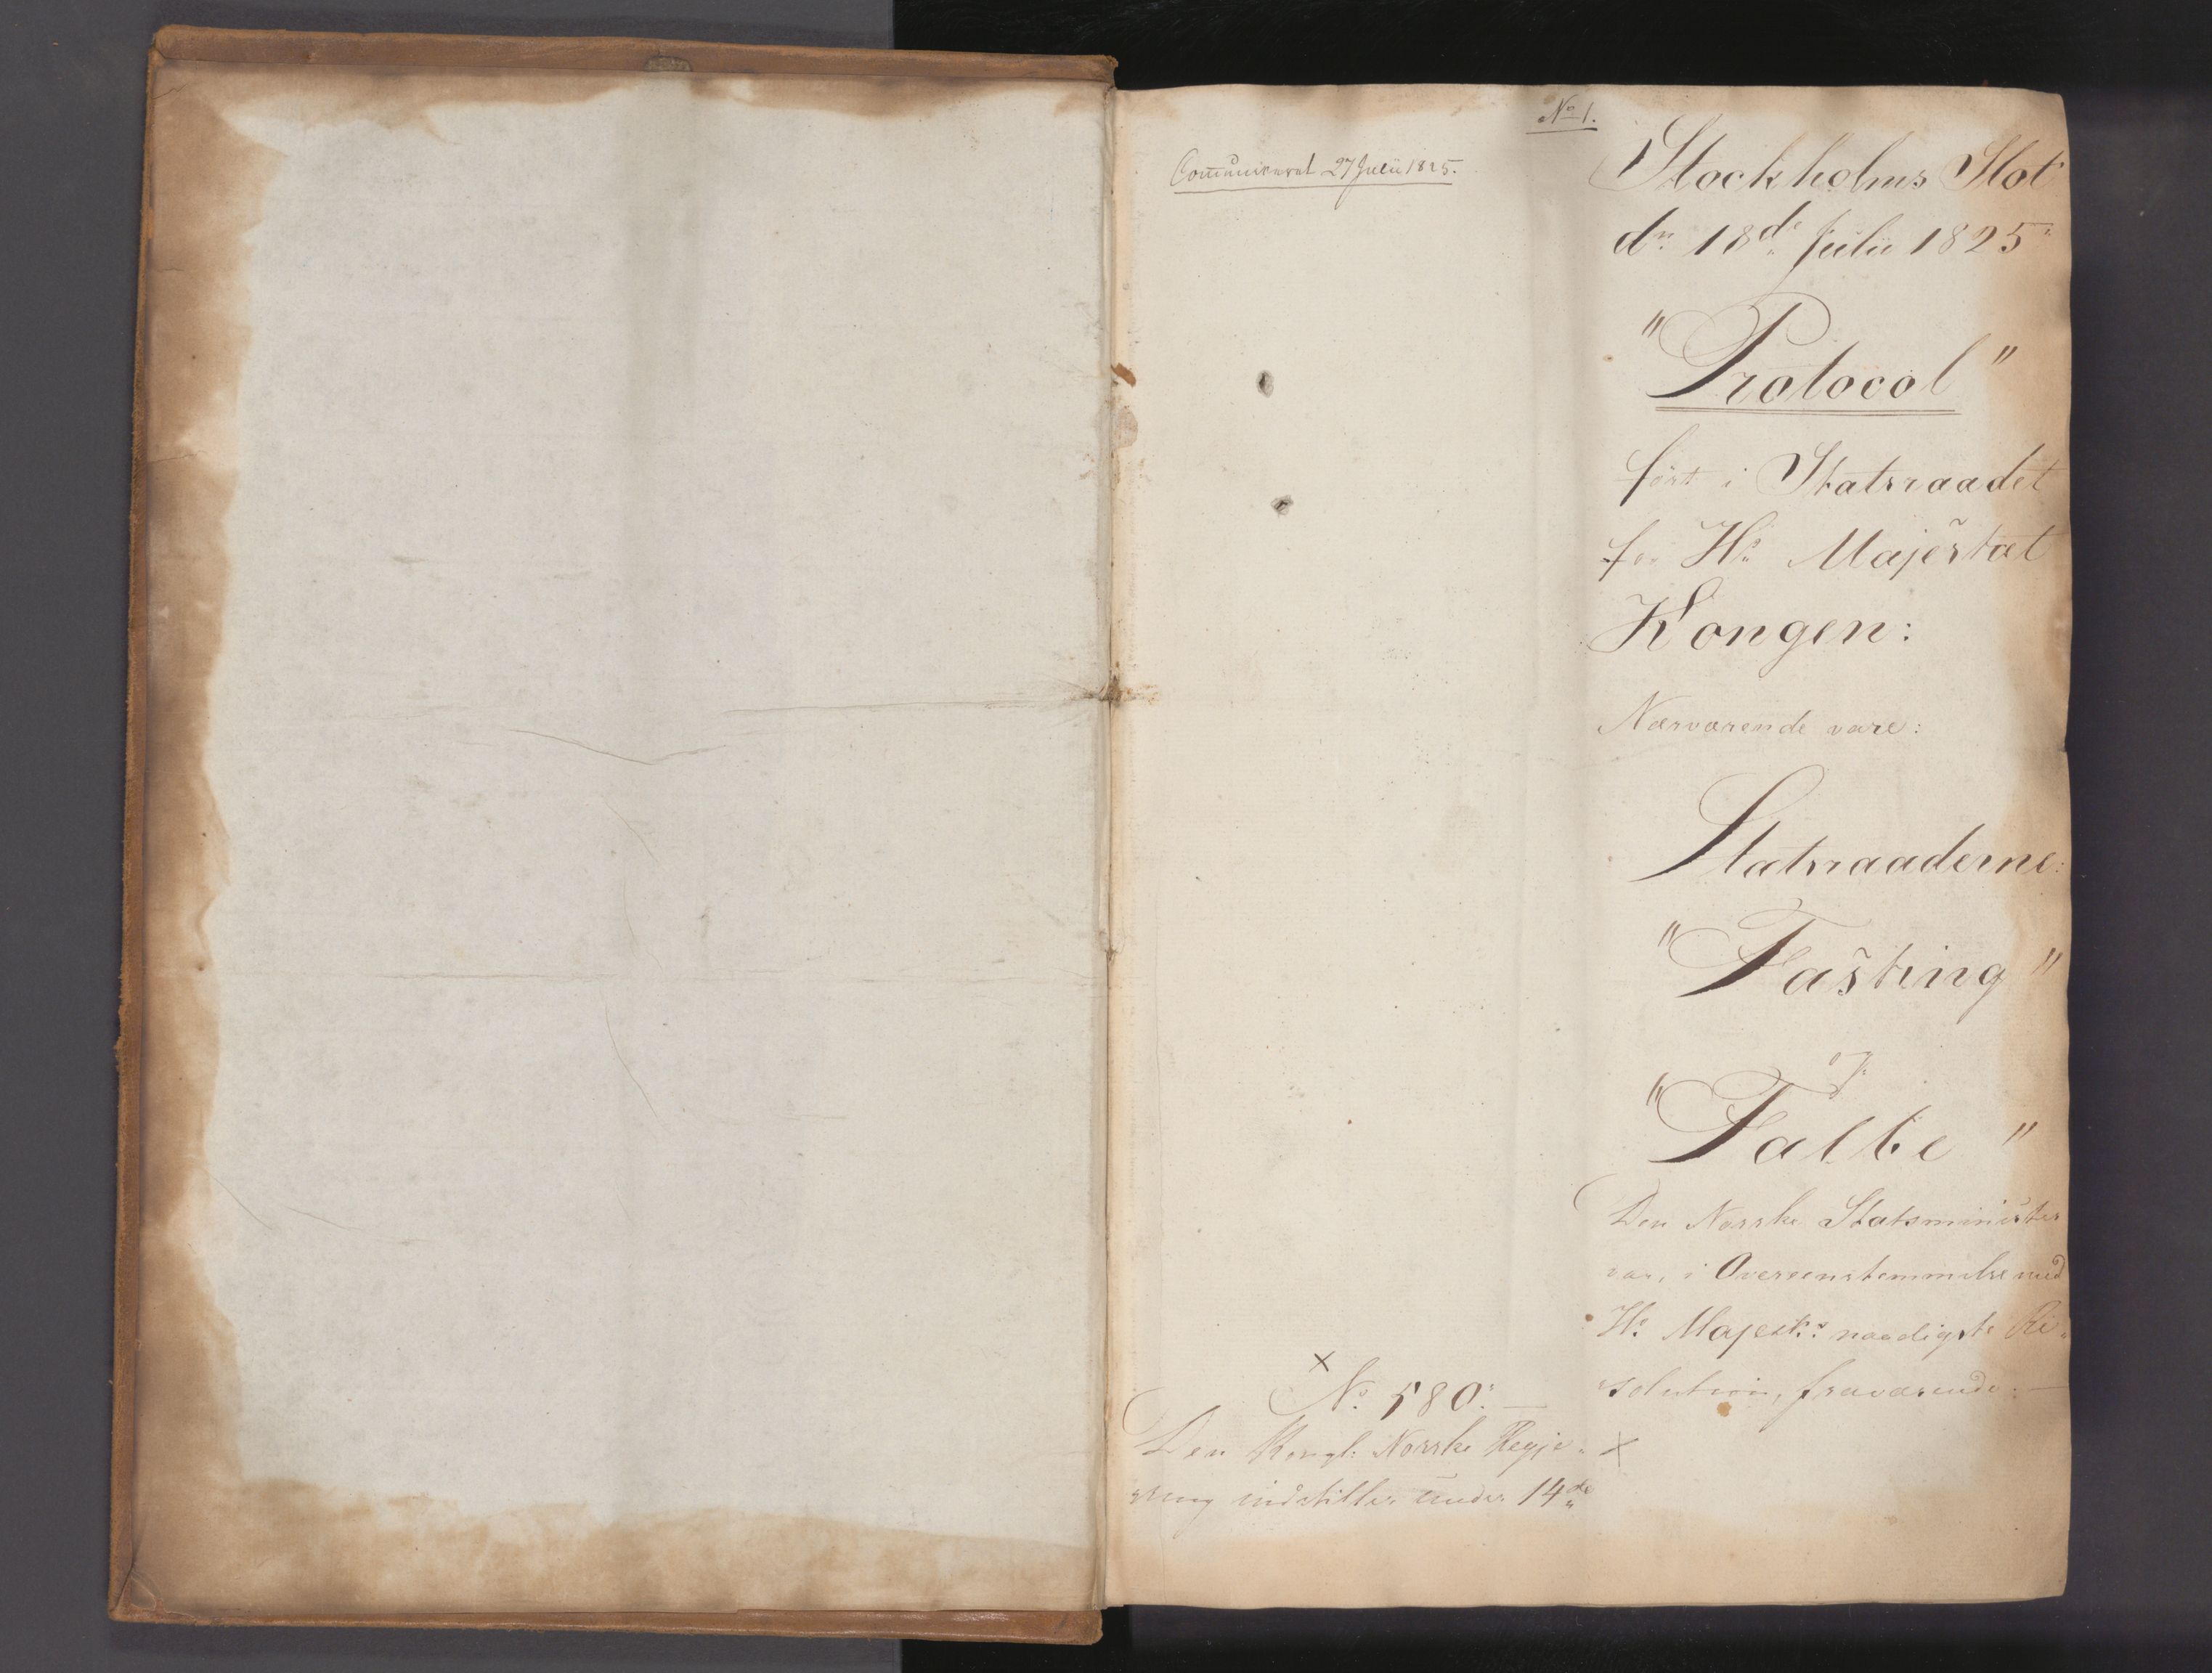 No 1.
Communiceret 27 Julii 1825.
Stockholms Slot
dn 18de Julii 1825
"Protocol"
ført i Statsraadet
for Hs Majestæt
Kongen:
Nærværende vare:
Statsraaderne:
"Fasting"
og
"Falbe"
Den Norske Statsminister
var, i Overeenstemmelse med
Hs Majests naadigste Re-
solution, fraværende: —
x
No 580: —
Den Kongl: Norske Regje- x
ring indstiller under 14de